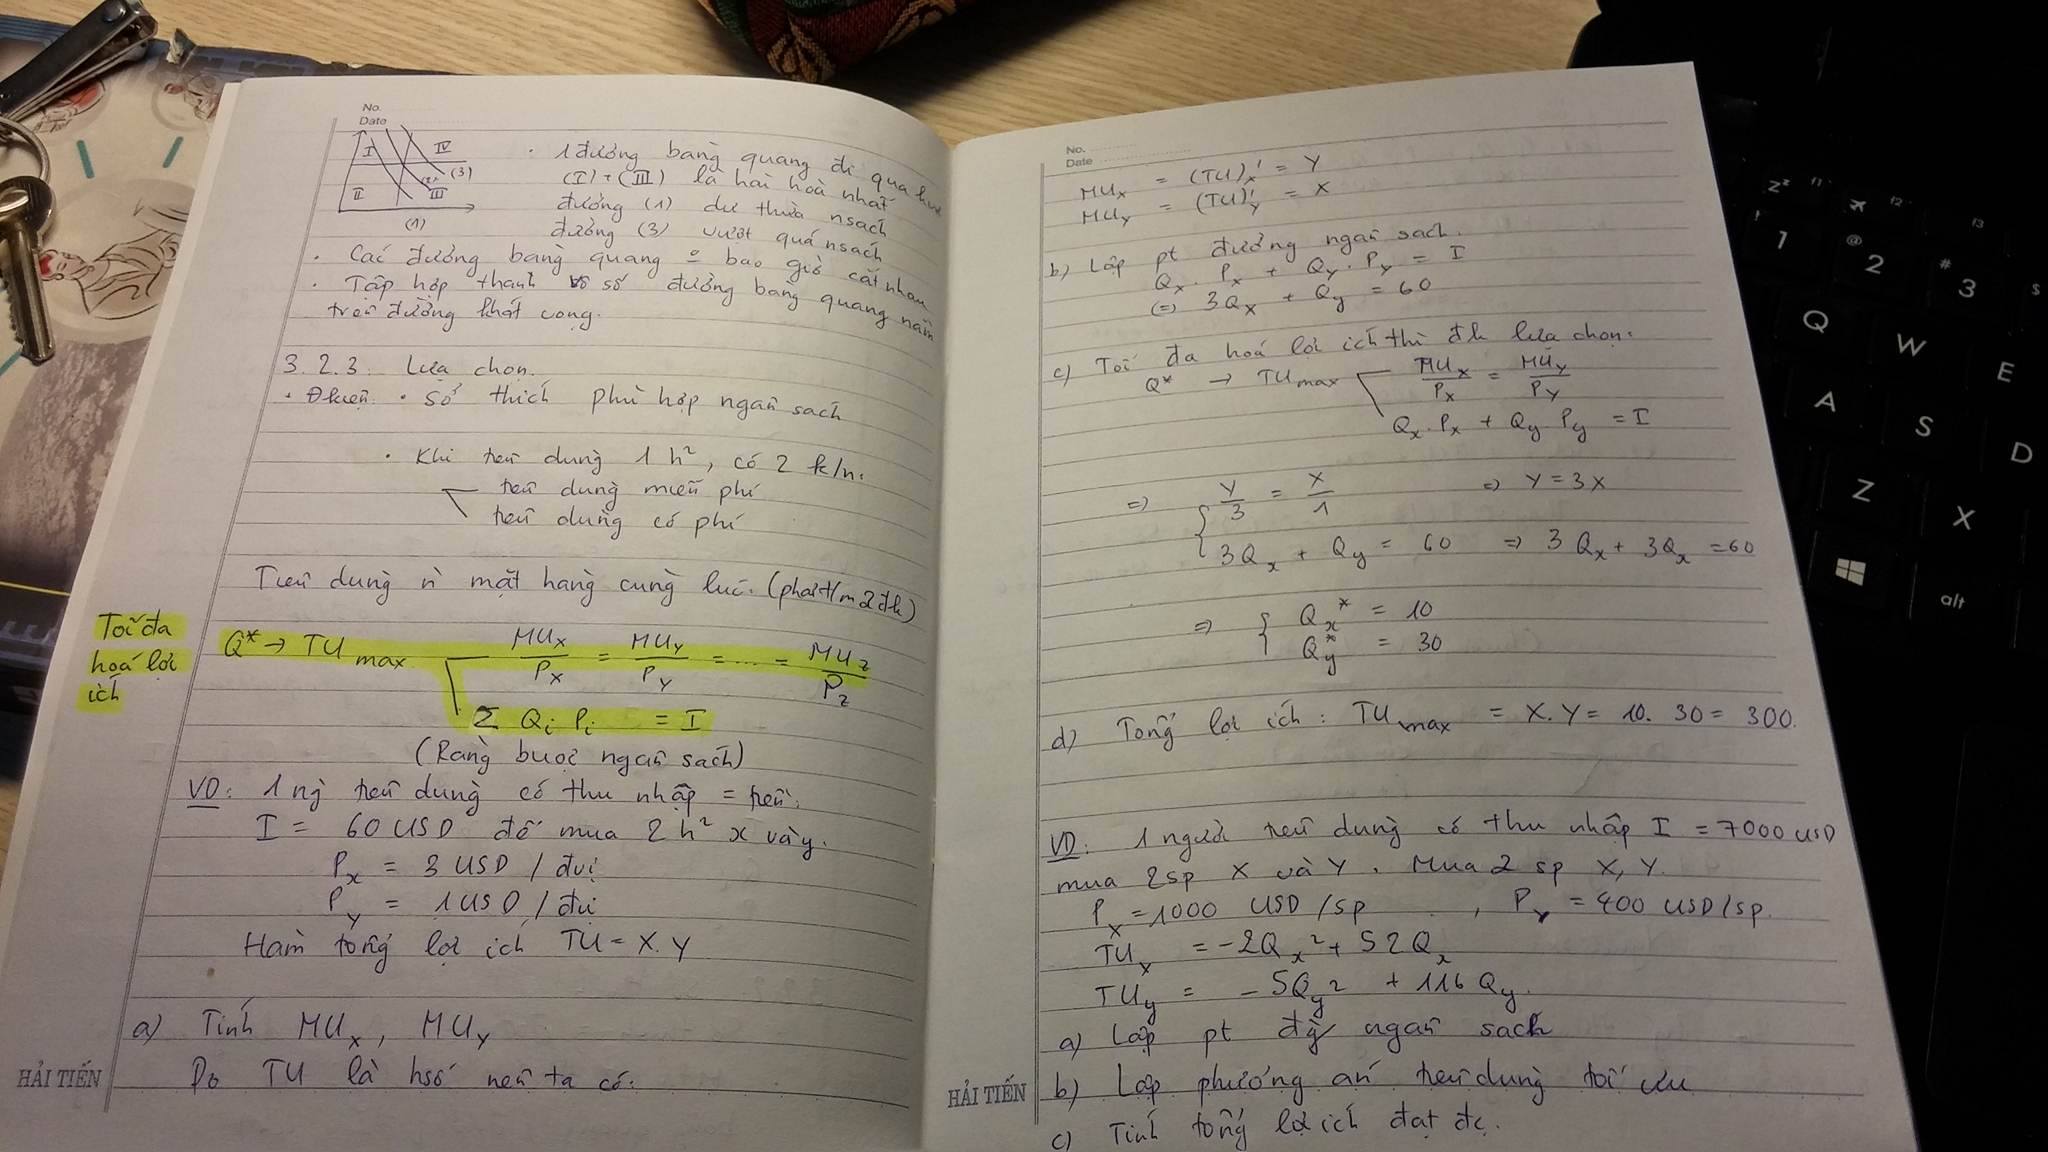 No.
Date
I
IV
(3)
(2)
II
III
(1)
· 1 đường bàng quang đi qua
(I) + (III) là hài hoà nhất
đường (1) dư thừa nsách
đường (3) vượt quá nsách
· Các đường bàng quang o bao giờ cắt nhau
· Tập hợp thành vô số đường bàng quang nằm
trên đường khát vọng.
3.2.3. Lựa chọn.
· Đkiện · Sở thích phù hợp ngân sách
· Khi tiêu dùng 1 h², có 2 k/n:
tiêu dùng miễn phí
tiêu dùng có phí
Tiêu dùng n mặt hàng cùng lúc. (phải t/m 2 đk)
Tối đa
hoá lợi
ích
Q* → TU max
MUx/Px = MUy/Py = ... = MUz/Pz
Σ Qi Pi = I
(Ràng buộc ngân sách)
VD: 1 ng tiêu dùng có thu nhập = tiền:
I = 60 USD để mua 2 h² x và y.
Px = 3 USD / đvị
Py = 1 USD / đvị
Hàm tổng lợi ích TU = X.Y
a) Tính MUx, MUy
Do TU là hsố nên ta có:
HẢI TIẾN
No.
Date
MUx = (TU)'x = Y
MUy = (TU)'y = X
b) Lập pt đường ngân sách.
Qx. Px + Qy. Py = I
(=) 3Qx + Qy = 60
c) Tối đa hoá lợi ích thì đk lựa chọn:
Q* → TU max
MUx/Px = MUy/Py
Qx.Px + Qy Py = I
=> Y/3 = X/1 => Y = 3X
3Qx + Qy = 60 => 3Qx + 3Qx = 60
=> Qx* = 10
Qy* = 30
d) Tổng lợi ích: TU max = X.Y = 10. 30 = 300.
VD: 1 người tiêu dùng có thu nhập I = 7000 USD
mua 2sp X và Y. Mua 2 sp X, Y.
Px = 1000 USD/sp, Py = 400 USD/sp.
TUx = -2Qx² + 52Qx
TUy = -5Qy² + 116Qy.
a) Lập pt đg ngân sách
b) Lập phương án tiêu dùng tối ưu
c) Tính tổng lợi ích đạt đc.
HẢI TIẾN
f11
f12
f13
!
1
@
2
#
3
$
Q
W
E
A
S
D
Z
X
alt